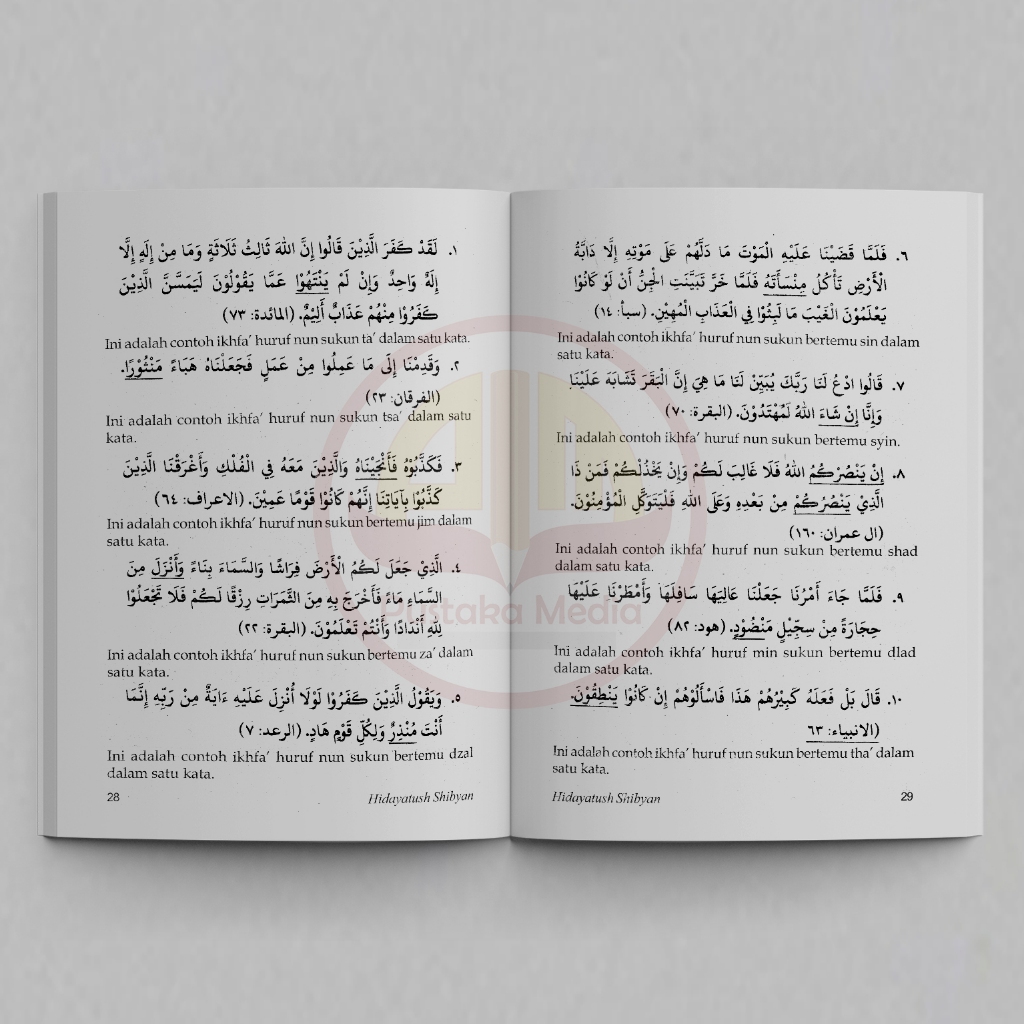 ١. لَقَدْ كَفَرَ الَّذِيْنَ قَالُوا إِنَّ اللهَ ثَالِثُ ثَلَاثَةٍ وَمَا مِنْ إِلَهٍ إِلَّا
إِلَهٌ وَاحِدٌ وَإِنْ لَمْ يَنْتَهُوْا عَمَّا يَقُوْلُوْنَ لَيَمَسَّنَّ الَّذِيْنَ
كَفَرُوْا مِنْهُمْ عَذَابٌ أَلِيْمٌ. (المائدة: ٧٣)
Ini adalah contoh ikhfa' huruf nun sukun ta' dalam satu kata.
٢. وَقَدِمْنَا إِلَى مَا عَمِلُوا مِنْ عَمَلٍ فَجَعَلْنَاهُ هَبَاءً مَنْثُوْرًا.
(الفرقان: ٢٣)
Ini adalah contoh ikhfa' huruf nun sukun tsa' dalam satu
kata.
٣. فَكَذَّبُوْهُ فَأَنْجَيْنَاهُ وَالَّذِيْنَ مَعَهُ فِي الْفُلْكِ وَأَغْرَقْنَا الَّذِيْنَ
كَذَّبُوْا بِآيَاتِنَا إِنَّهُمْ كَانُوْا قَوْمًا عَمِيْنَ. (الاعراف: ٦٤)
Ini adalah contoh ikhfa' huruf nun sukun bertemu jim dalam
satu kata.
٤. الَّذِيْ جَعَلَ لَكُمُ الْأَرْضَ فِرَاشًا وَالسَّمَاءَ بِنَاءً وَأَنْزَلَ مِنَ
السَّمَاءِ مَاءً فَأَخْرَجَ بِهِ مِنَ الثَّمَرَاتِ رِزْقًا لَكُمْ فَلَا تَجْعَلُوْا
لِلَّهِ أَنْدَادًا وَأَنْتُمْ تَعْلَمُوْنَ. (البقرة: ٢٢)
Ini adalah contoh ikhfa' huruf nun sukun bertemu za' dalam
satu kata.
٥. وَيَقُوْلُ الَّذِيْنَ كَفَرُوْا لَوْلَا أُنْزِلَ عَلَيْهِ ءَايَةٌ مِنْ رَبِّهِ إِنَّمَا
أَنْتَ مُنْذِرٌ وَلِكُلِّ قَوْمٍ هَادٍ. (الرعد: ٧)
Ini adalah contoh ikhfa' huruf nun sukun bertemu dzal
dalam satu kata.
28 Hidayatush Shibyan
٦. فَلَمَّا قَضَيْنَا عَلَيْهِ الْمَوْتَ مَا دَلَّهُمْ عَلَى مَوْتِهِ إِلَّا دَابَّةُ
الْأَرْضِ تَأْكُلُ مِنْسَأَتَهُ فَلَمَّا خَرَّ تَبَيَّنَتِ الْجِنُّ أَنْ لَوْ كَانُوْا
يَعْلَمُوْنَ الْغَيْبَ مَا لَبِثُوْا فِي الْعَذَابِ الْمُهِيْنِ. (سبأ: ١٤)
Ini adalah contoh ikhfa' huruf nun sukun bertemu sin dalam
satu kata.
٧. قَالُوا ادْعُ لَنَا رَبَّكَ يُبَيِّنْ لَنَا مَا هِيَ إِنَّ الْبَقَرَ تَشَابَهَ عَلَيْنَا
وَإِنَّا إِنْ شَاءَ اللهُ لَمُهْتَدُوْنَ. (البقرة: ٧٠)
Ini adalah contoh ikhfa' huruf nun sukun bertemu syin.
٨. إِنْ يَنْصُرْكُمُ اللهُ فَلَا غَالِبَ لَكُمْ وَإِنْ يَخْذُلْكُمْ فَمَنْ ذَا
الَّذِيْ يَنْصُرُكُمْ مِنْ بَعْدِهِ وَعَلَى اللهِ فَلْيَتَوَكَّلِ الْمُؤْمِنُوْنَ.
(ال عمران: ١٦٠)
Ini adalah contoh ikhfa' huruf nun sukun bertemu shad
dalam satu kata.
٩. فَلَمَّا جَاءَ أَمْرُنَا جَعَلْنَا عَالِيَهَا سَافِلَهَا وَأَمْطَرْنَا عَلَيْهَا
حِجَارَةً مِنْ سِجِّيْلٍ مَنْضُوْدٍ. (هود: ٨٢)
Ini adalah contoh ikhfa' huruf min sukun bertemu dlad
dalam satu kata.
١٠. قَالَ بَلْ فَعَلَهُ كَبِيْرُهُمْ هَذَا فَاسْأَلُوْهُمْ إِنْ كَانُوْا يَنْطِقُوْنَ.
(الانبياء: ٦٣
Ini adalah contoh ikhfa' huruf nun sukun bertemu tha' dalam
satu kata.
Hidayatush Shibyan 29
Pustaka Media